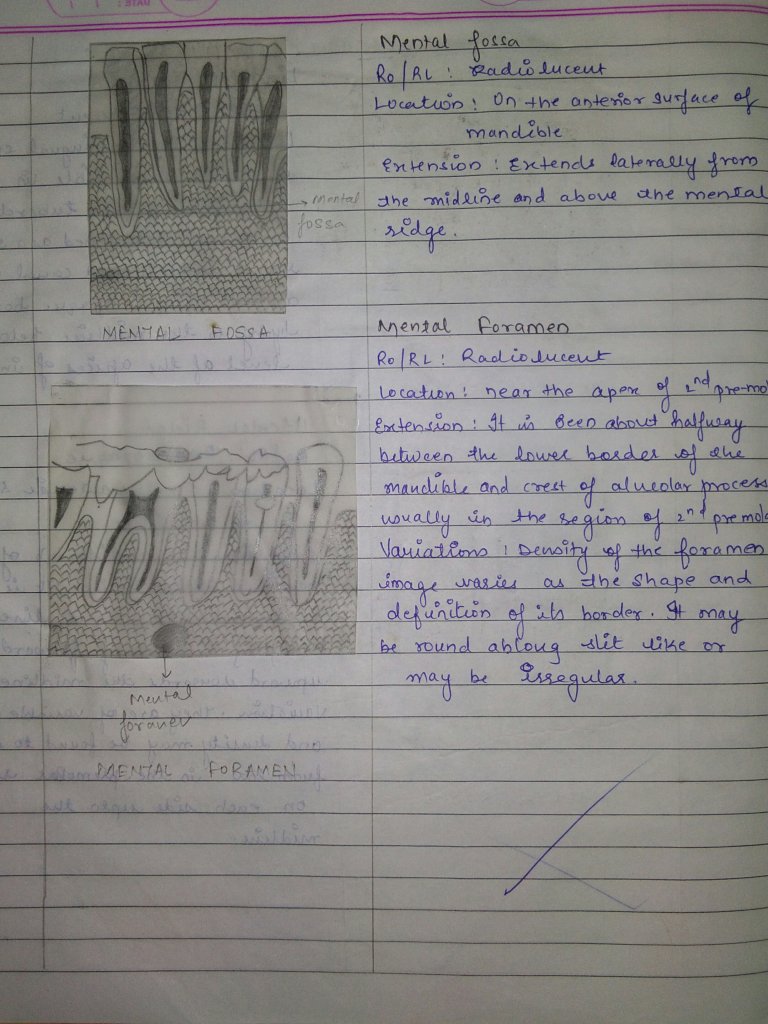 Mental fossa
Ro/RL : Radiolucent
Location : On the anterior surface of
mandible
Extension : Extends laterally from
the midline and above the mental
ridge.
→ Mental
fossa
MENTAL FOSSA
Mental Foramen
Ro/RL : Radiolucent
Location : near the apex of 2nd pre-mol
Extension : It is Been about halfway
between the lower border of the
mandible and crest of alveolar process
usually in the region of 2nd premola
Variations : Density of the foramen
image varies as the shape and
definition of its border. It may
be round ablong slit like or
may be Irregular.
Mental
foramen
MENTAL FORAMEN